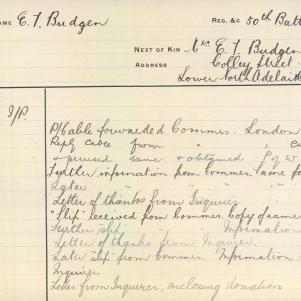 NAME E. T. Budgen REG. &C 50th Batt
NEXT OF KIN Mrs E. T. Budgen
ADDRESS Colley Street
Lower North Adelaide
I/P
P/Cable forwarded Commr. London
Reply Cable from " Ca
& perused same & obtained P of W
Further information from Commr. Same for
Later " " " "
Letter of thanks from Inquirer
"Slip" received from Commr. Copy of same
Further slip " " Information
Letter of thanks from Inquirer.
Later "slip" from Commr. Information
Inquirer
Letter from Inquirer, enclosing donation